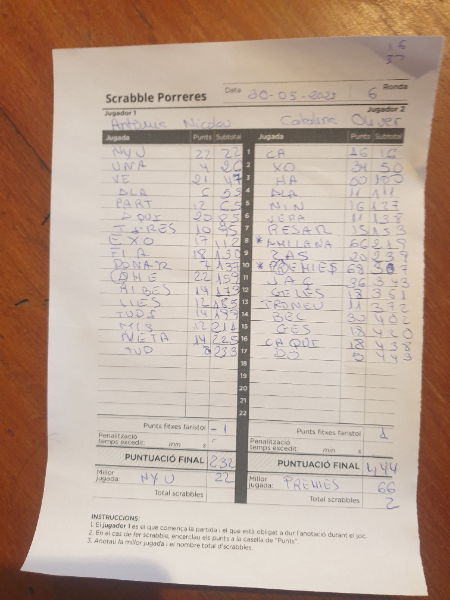 Scrabble Porreres
Data 30-05-2023 6 Ronda
Jugador 1 Jugador 2
Antònia Nicolau Catalina Oliver
Jugada Punts Subtotal Jugada Punts Subtotal
NYU 22 22 1 CA 16 16
UNA 4 26 2 XO 34 50
VE 21 47 3 HA 50 100
ALA 6 53 4 ALA 11 111
PART 12 65 5 NIN 16 127
AQUI 20 85 6 VERA 11 138
10 95 7 RESAR 15 153
EXO 17 112 8 * 66 219
FIA 18 130 9 ZAS 20 239
DONAR 7 137 10 * PREMIES 68 307
22 159 11 36 343
14 173 12 GELES 18 361
LIES 12 185 13 11 372
14 199 14 BEL 30 402
12 211 15 GES 18 420
NETA 14 225 16 CAQUI 18 438
17 DO 443
18
19
20
21
22
Punts fitxes faristol -1 Punts fitxes faristol 1
Penalització temps excedit: min s Penalització temps excedit: min s
PUNTUACIÓ FINAL 232 PUNTUACIÓ FINAL 444
Millor jugada: NYU 22 Millor jugada: PREMIES 66
Total scrabbles Total scrabbles 2
INSTRUCCIONS:
1. El jugador 1 és el que comença la partida i el que està obligat a dur l'anotació durant el joc.
2. En el cas de fer scrabble, encerclau els punts a la casella de "Punts".
3. Anotau la millor jugada i el nombre total d'scrabbles.